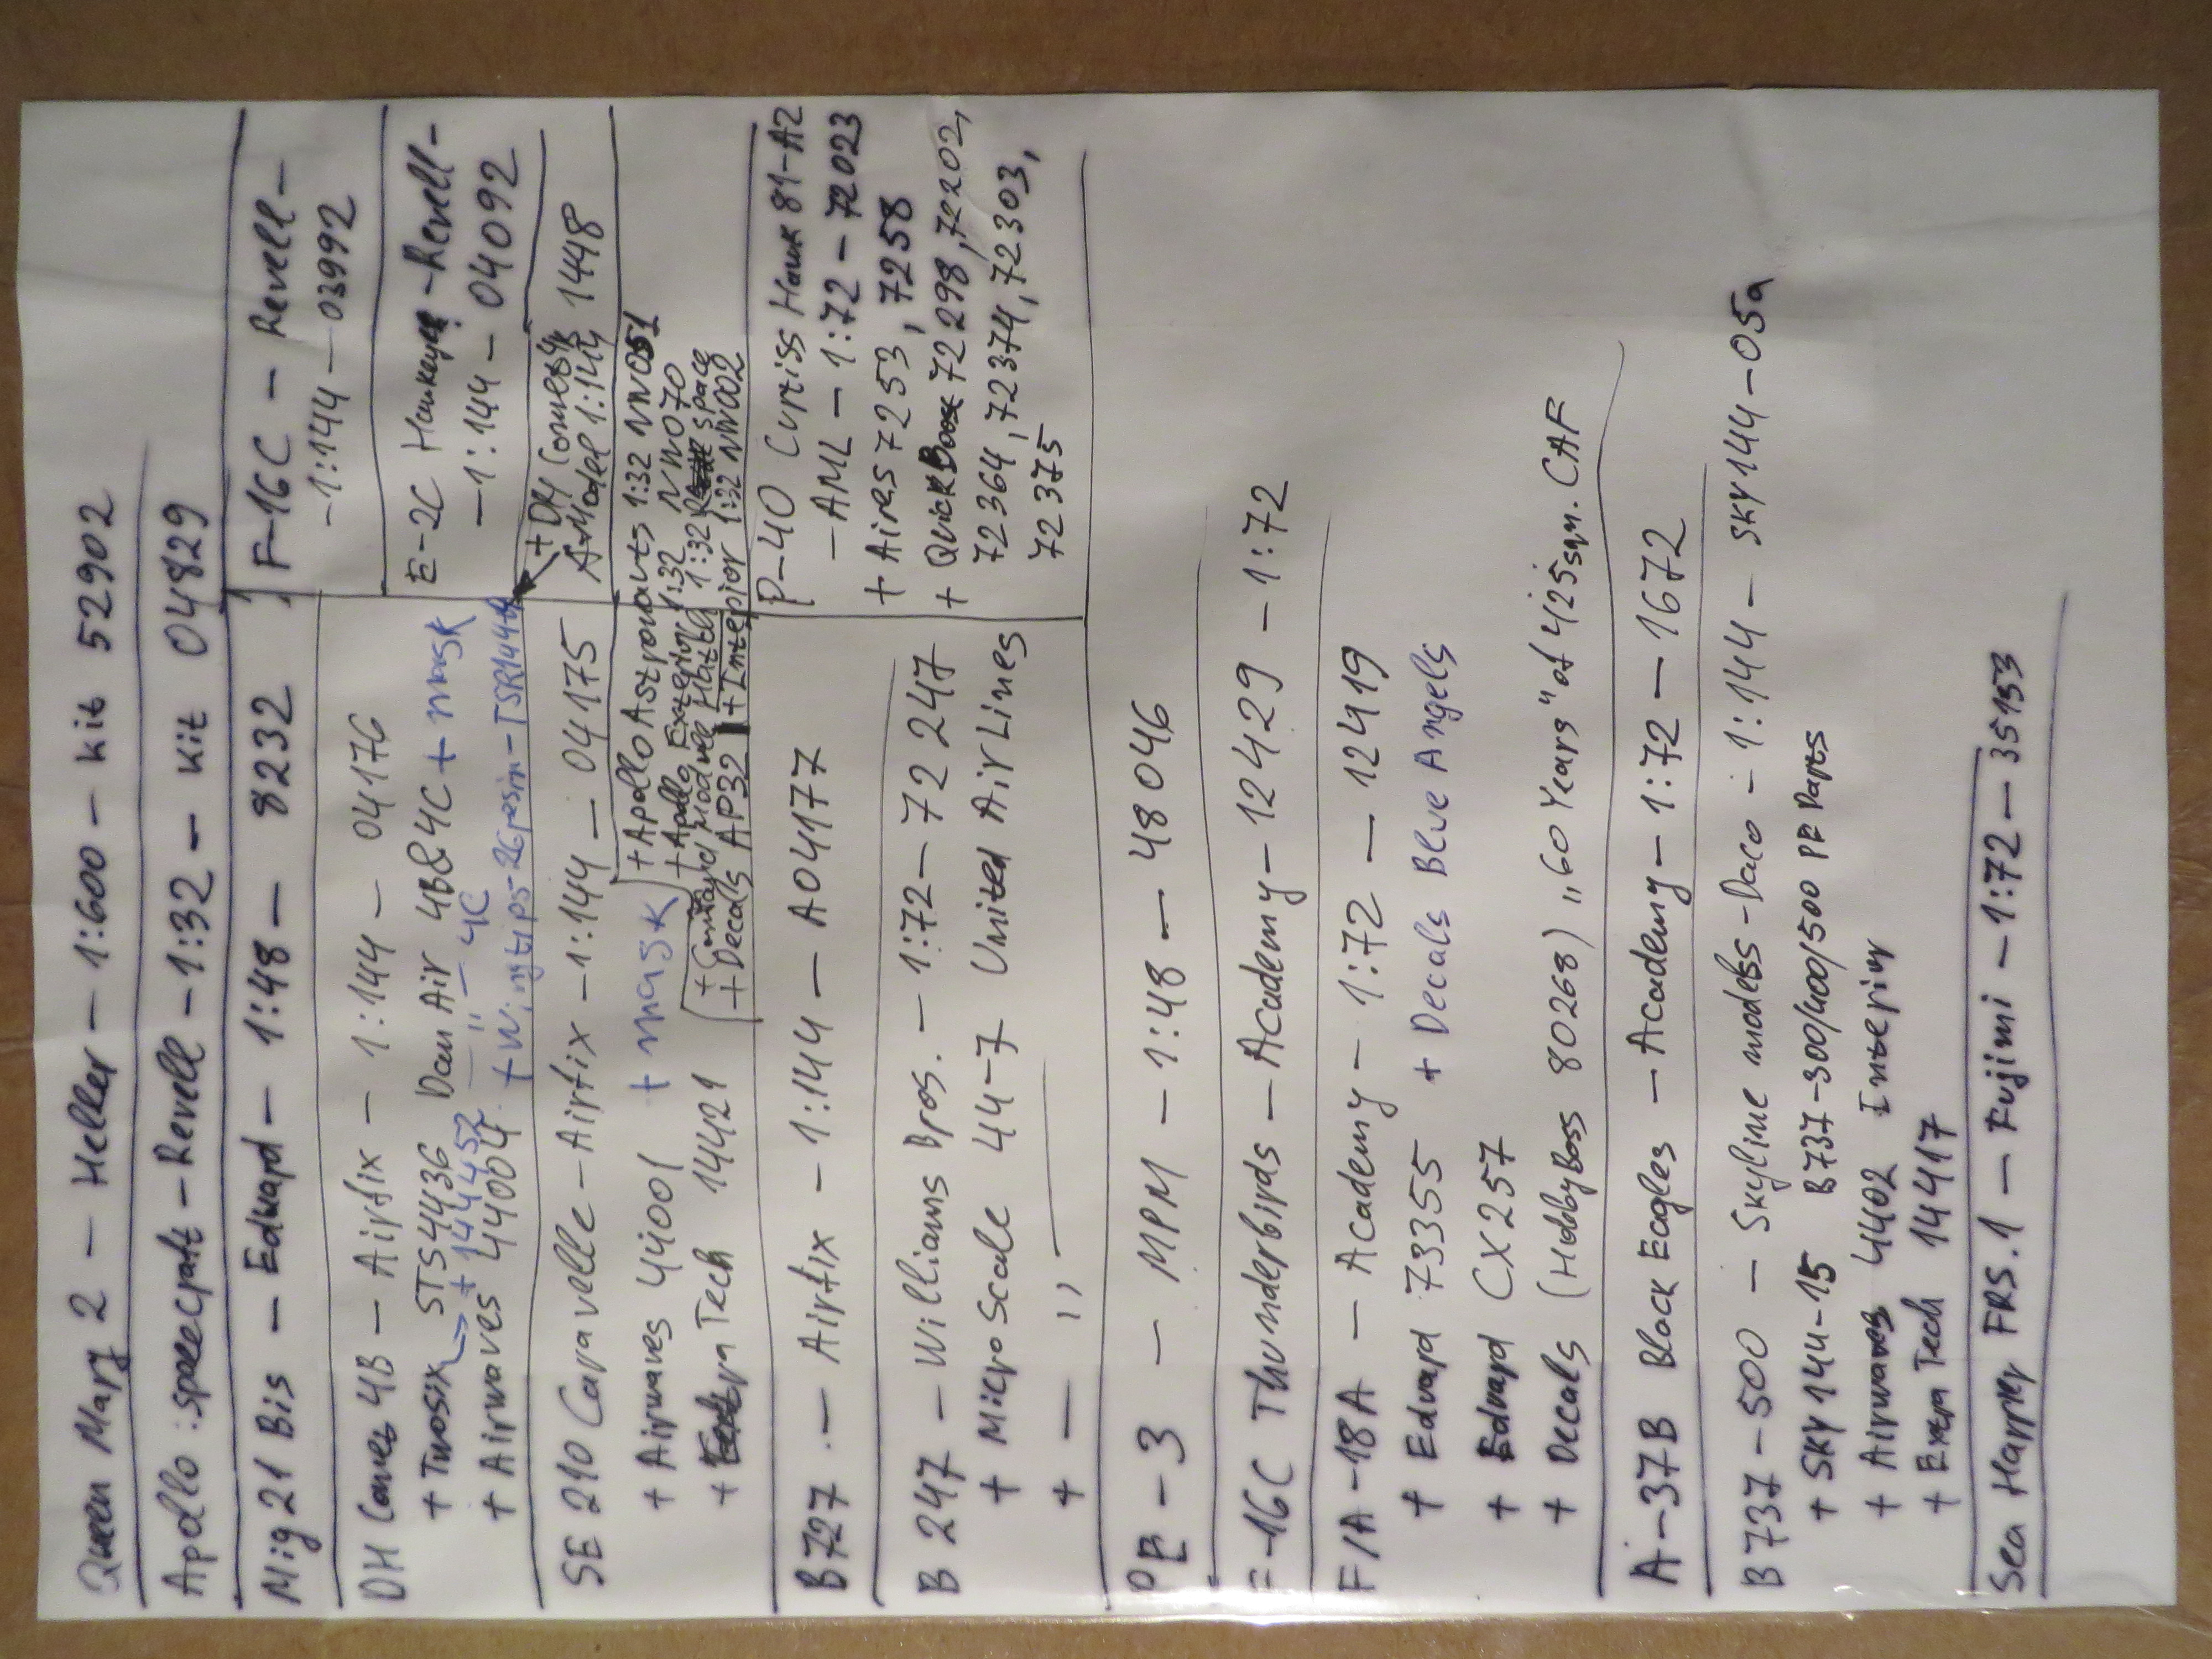 Queen Mary 2 – Heller – 1:600 – kit 52902
Apollo: spececraft – Revell – 1:32 – kit 04829
Mig 21 Bis – Eduard – 1:48 – 8232
F-16C – Revell –
– 1:144 – 039992
DH Comet 4B – Airfix – 1:144 – 04176
+ Twosix STS4436 Dan Air 4B&4C + mask
+ 144452 – 〃 – 4C
+ Airwaves 44004 + Wingtips-2Gresin-TSR1444
E-2C Hawkeye – Revell –
– 1:144 – 04092
+ DH Comet 4
A-Model 1:144 1448
SE 210 Caravelle – Airfix – 1:144 – 04175
+ Airwaves 44001 + mask
+ Extra Tech 14421
+ Apollo Astronauts 1:32 NW051
+ Apollo Exterior 1:32 NW070
+ Command Module Hatch 1:32 Real space
+ Decals AP32 + Interior 1:32 NW002
B727 – Airfix – 1:144 – A04177
B 247 – Willians Bros. – 1:72 – 72 247
+ MicroScale 44-7 United AirLines
+ – 〃 –
P-40 Curtiss Hawk 81-A2
– AML – 1:72 – 72023
+ Aires 7253, 7258
+ QuickBoost 72298, 72202,
72364, 72374, 72303,
72375
PE-3 – MPM – 1:48 – 48046
F-16C Thunderbirds – Academy – 12429 – 1:72
F/A-18A – Academy – 1:72 – 12419
+ Eduard 73355 + Decals Blue Angels
+ Eduard CX257
+ Decals (HobbyBoss 80268) „60 Years" of 425sqn. CAF
A-37B Black Eagles – Academy – 1:72 – 1672
B737-500 – Skyline models – Daco – 1:144 – SKY144-05a
+ SKY144-15 B737-300/400/500 PE Parts
+ Airwaves 4402 Interior
+ Extra Tech 14417
Sea Harrier FRS.1 – Fujimi – 1:72 – 35153